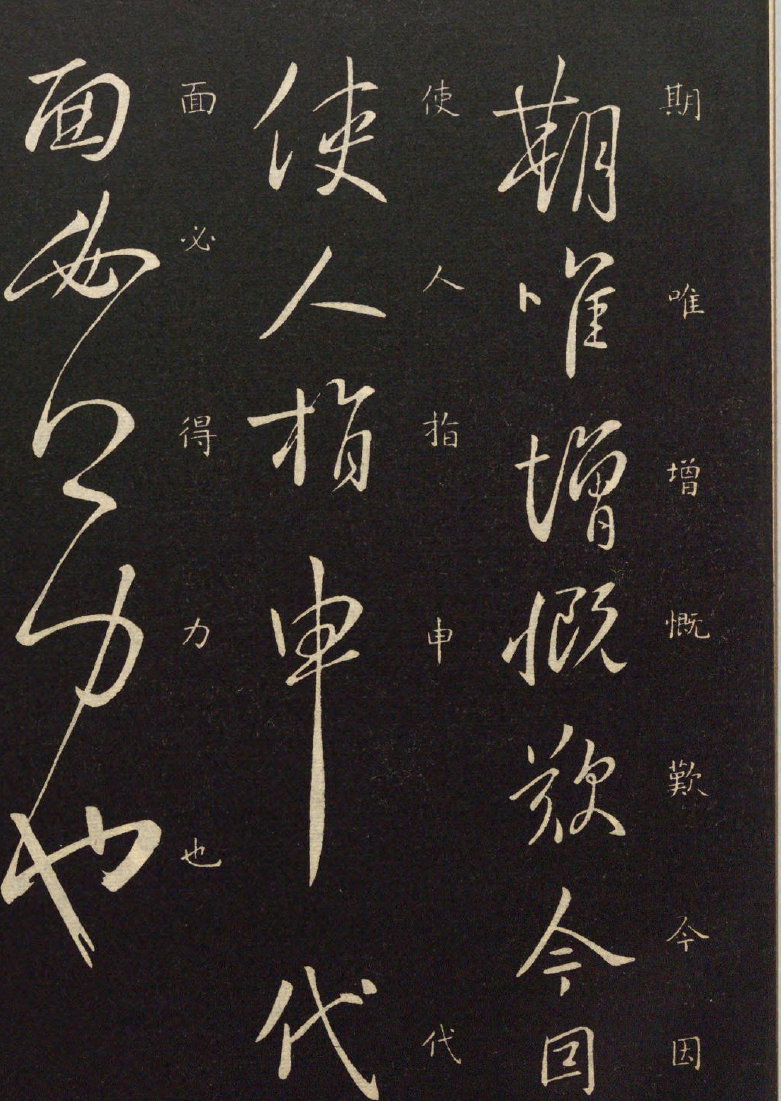 期唯增慨歎今因
期唯增慨歎今因
使人指申代
使人指申代
面必得力也
面必得力也